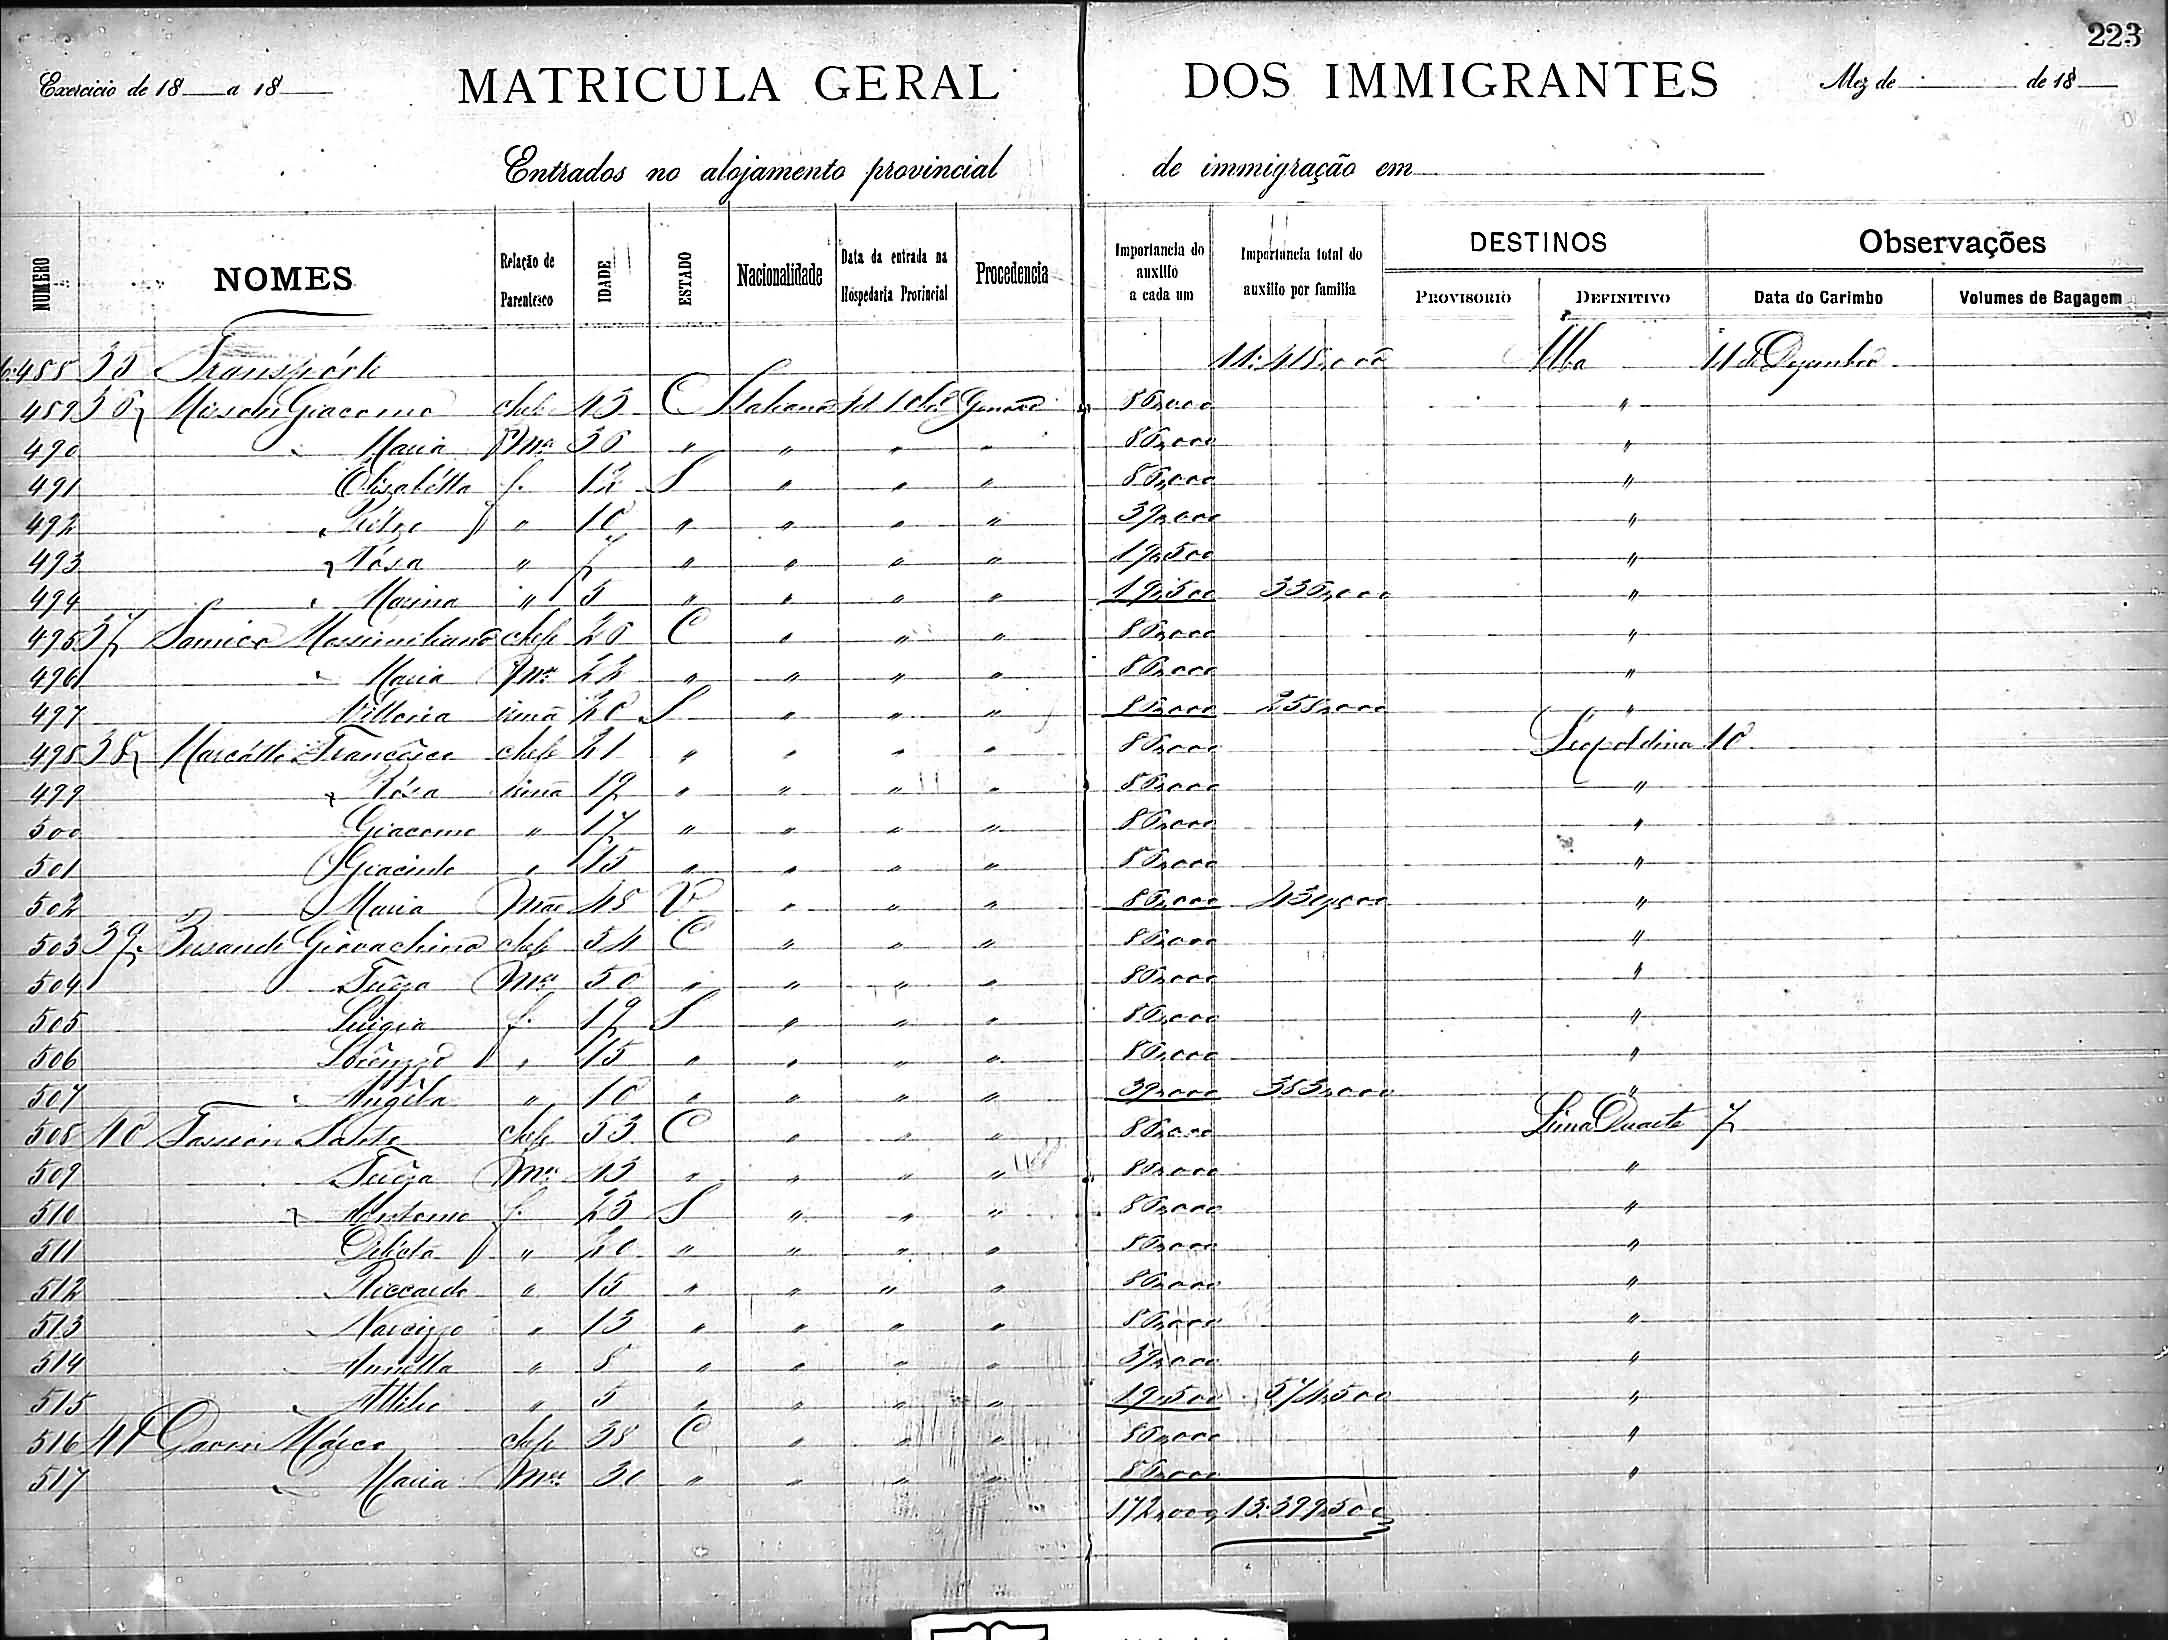 223
Exercicio de 18 a 18 MATRICULA GERAL DOS IMMIGRANTES Mez de de 18
Entrados no alojamento provincial de immigração em
NUMERO NOMES Relação de Parentesco IDADE ESTADO Nacionalidade Data da entrada na Hospedaria Provincial Procedencia Importancia do auxilio a cada um Importancia total do auxilio por familia DESTINOS PROVISORIO DEFINITIVO Observações Data do Carimbo Volumes de Bagagem
488 35 Transpórte 11:418,000 Ubá 11 de Dezembro
489 36 Giacomo chefe 43 C Italiana Genova 86,000 "
490 " Maria Mer 36 " " " " 86,000 "
491 Elisabétta f. 12 S " " " 86,000 "
492 " Piétro " 10 " " " " 39,000 "
493 " Rósa " 7 " " " " 19,500 "
494 " Marina " 5 " " " " 19,500 336,000 "
495 37 Massimiliano chefe 26 C " " " 86,000 "
496 " Maria Mer 22 " " " " 86,000 "
497 Vittoria irmã 20 S " " " 86,000 258,000 "
498 38 Francisco chefe 21 " " " " 86,000 Leopoldina 10
499 " Rósa irmã 19 " " " " 86,000 "
500 Giacomo " 17 " " " " 86,000 "
501 Giacinto " 15 " " " " 86,000 "
502 Maria Mãe 48 V " " " 86,000 430,000 "
503 39 Giovachino chefe 54 C " " " 86,000 "
504 Mer 50 " " " " 86,000 "
505 Luigia f. 19 S " " " 86,000 "
506 Lorenzo " 15 " " " " 86,000 "
507 " Angéla " 10 " " " " 39,000 383,000 "
508 40 Sante chefe 53 C " " " 86,000 Lima Duarte 7
509 Mer 43 " " " " 86,000 "
510 " Antonio f. 23 S " " " 86,000 "
511 " 20 " " " " 86,000 "
512 Riccardo " 15 " " " " 86,000 "
513 " Narcizzo " 13 " " " " 86,000 "
514 " " 8 " " " " 39,000 "
515 " Attilio " 5 " " " " 19,500 574,500 "
516 41 Márco chefe 38 C " " " 86,000 "
517 " Maria Mer 30 " " " " 86,000 "
172,000 13:399,500